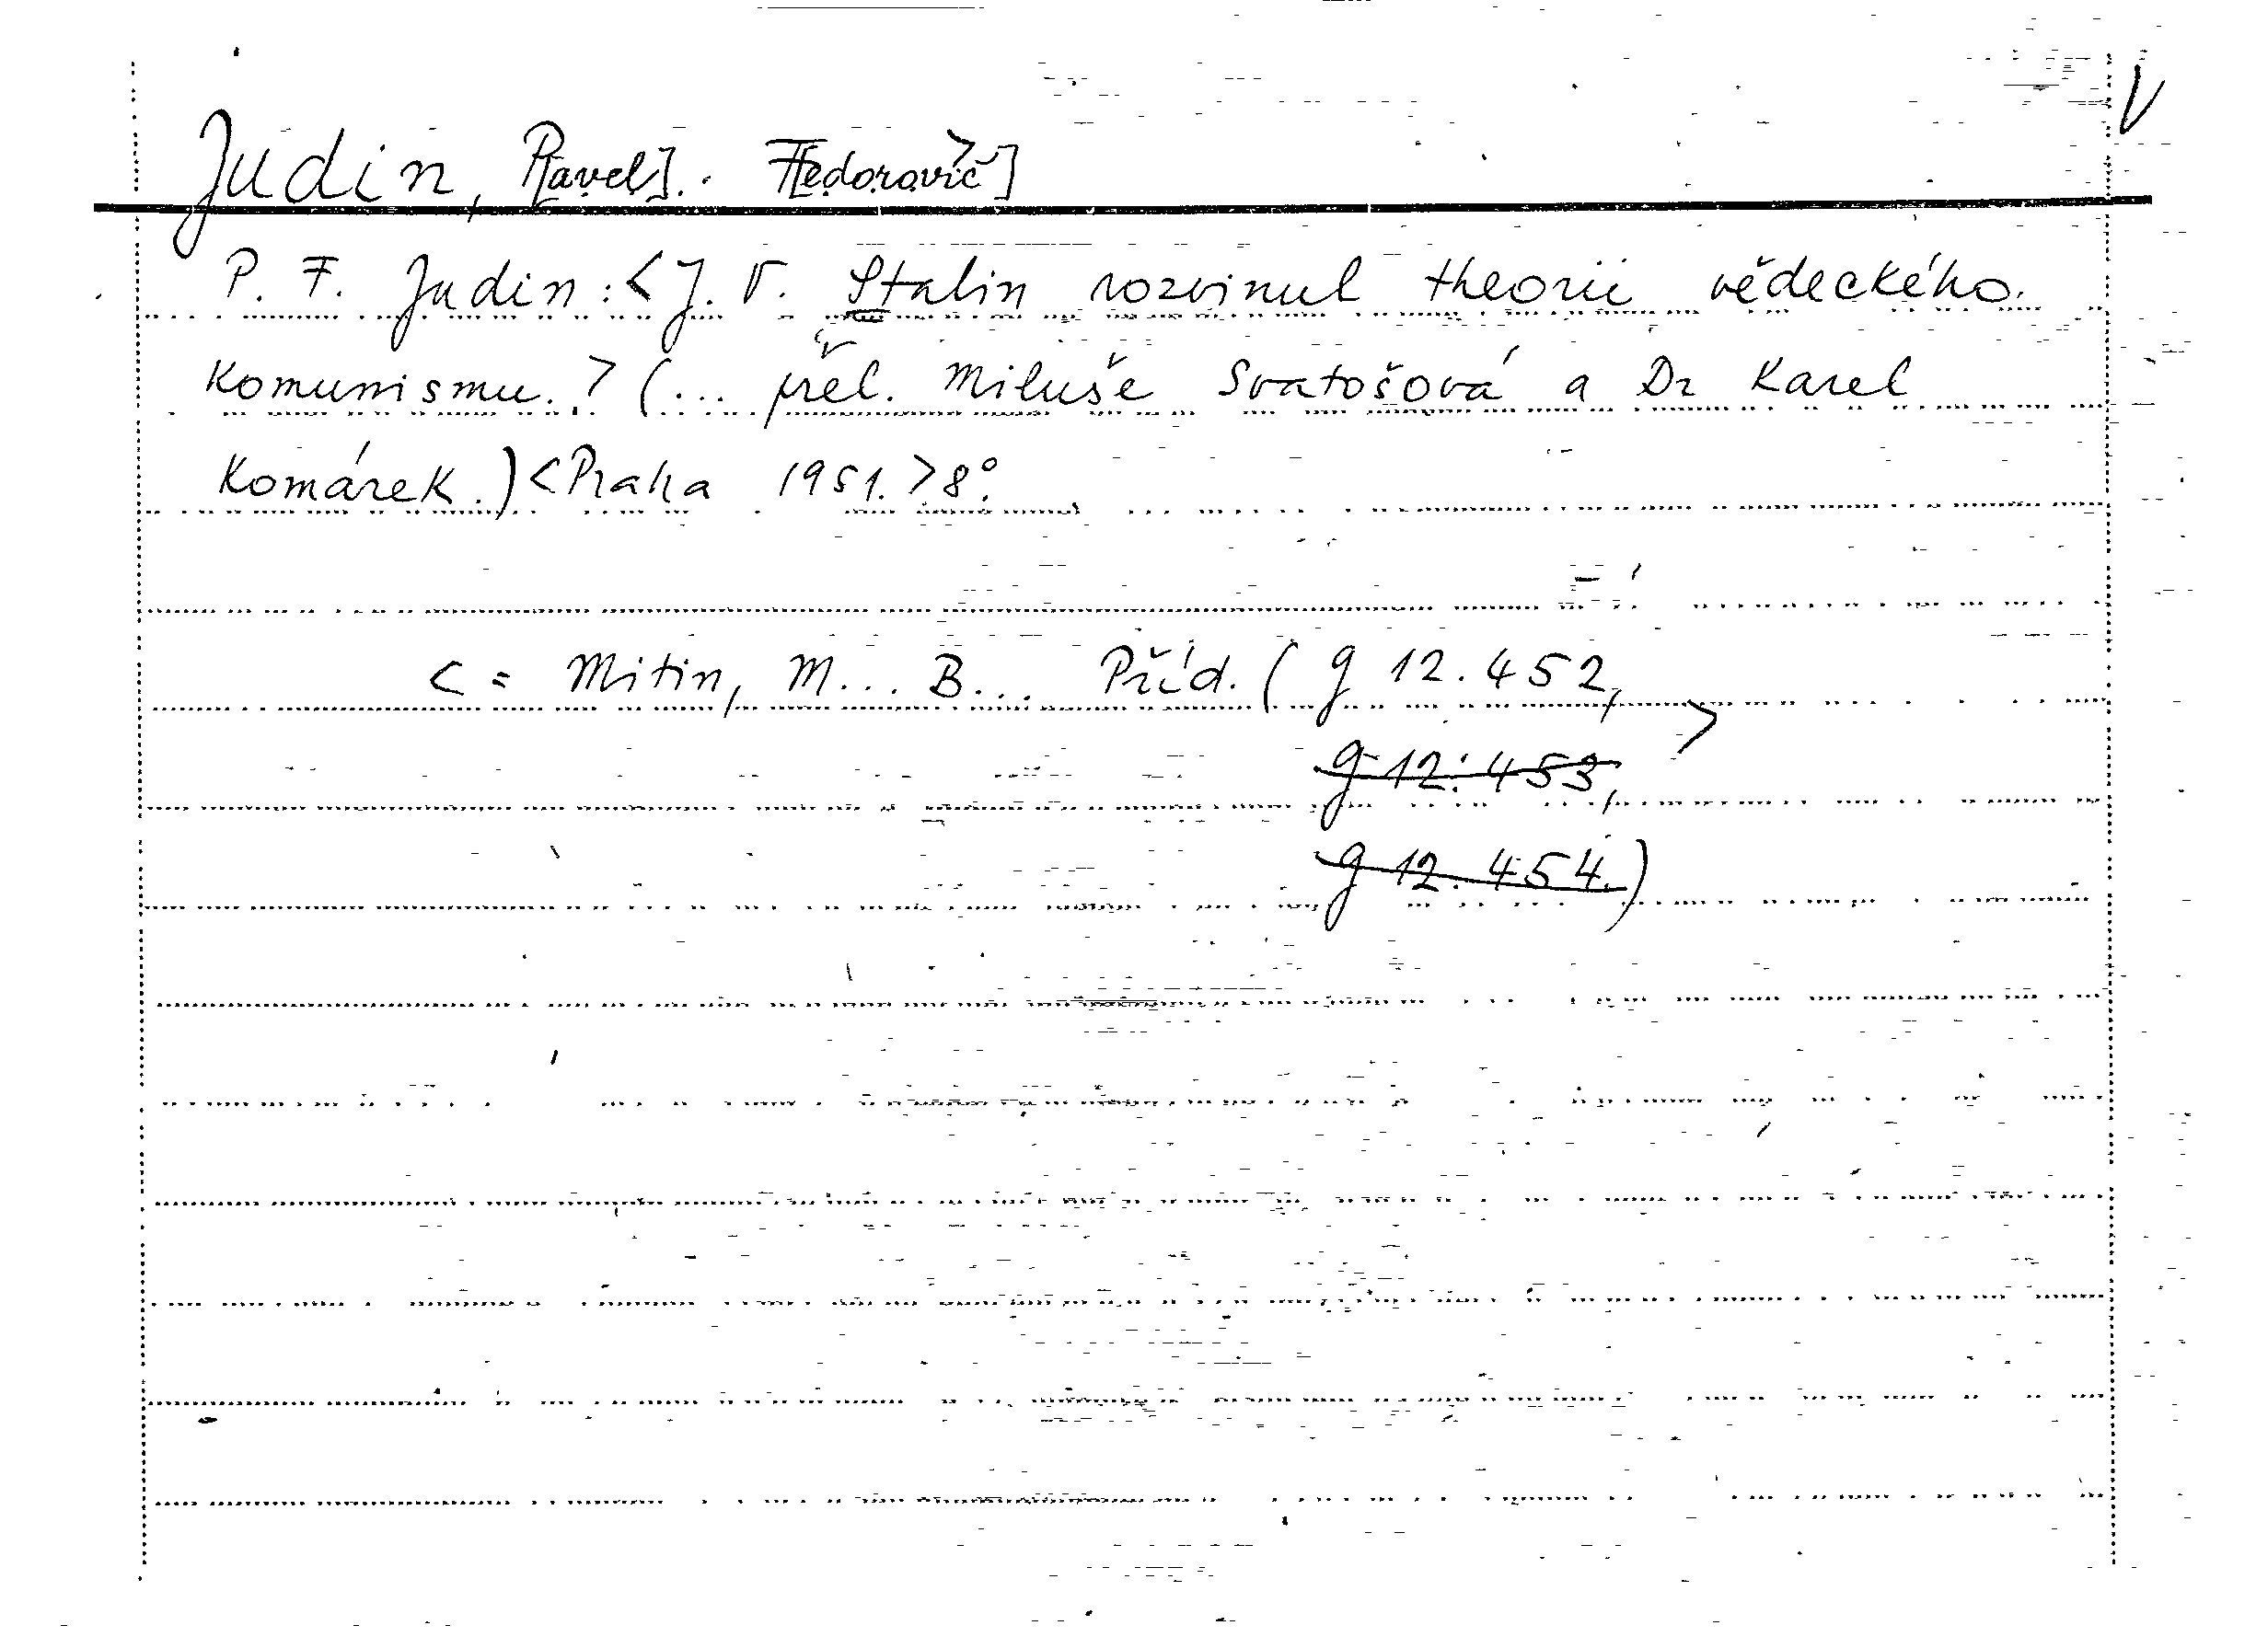 V
Judin, P[avel]. F[edorovič]>
P. F. Judin: <J. V. Stalin rozvinul theorii vědeckého
komunismu.> (... přel. Miluše Svatošová a Dr Karel
Komárek.) <Praha 1951.> 8°.
< = Mitin, M... B... Příd. ( g 12.452, >
g 12.453,
g 12.454.)